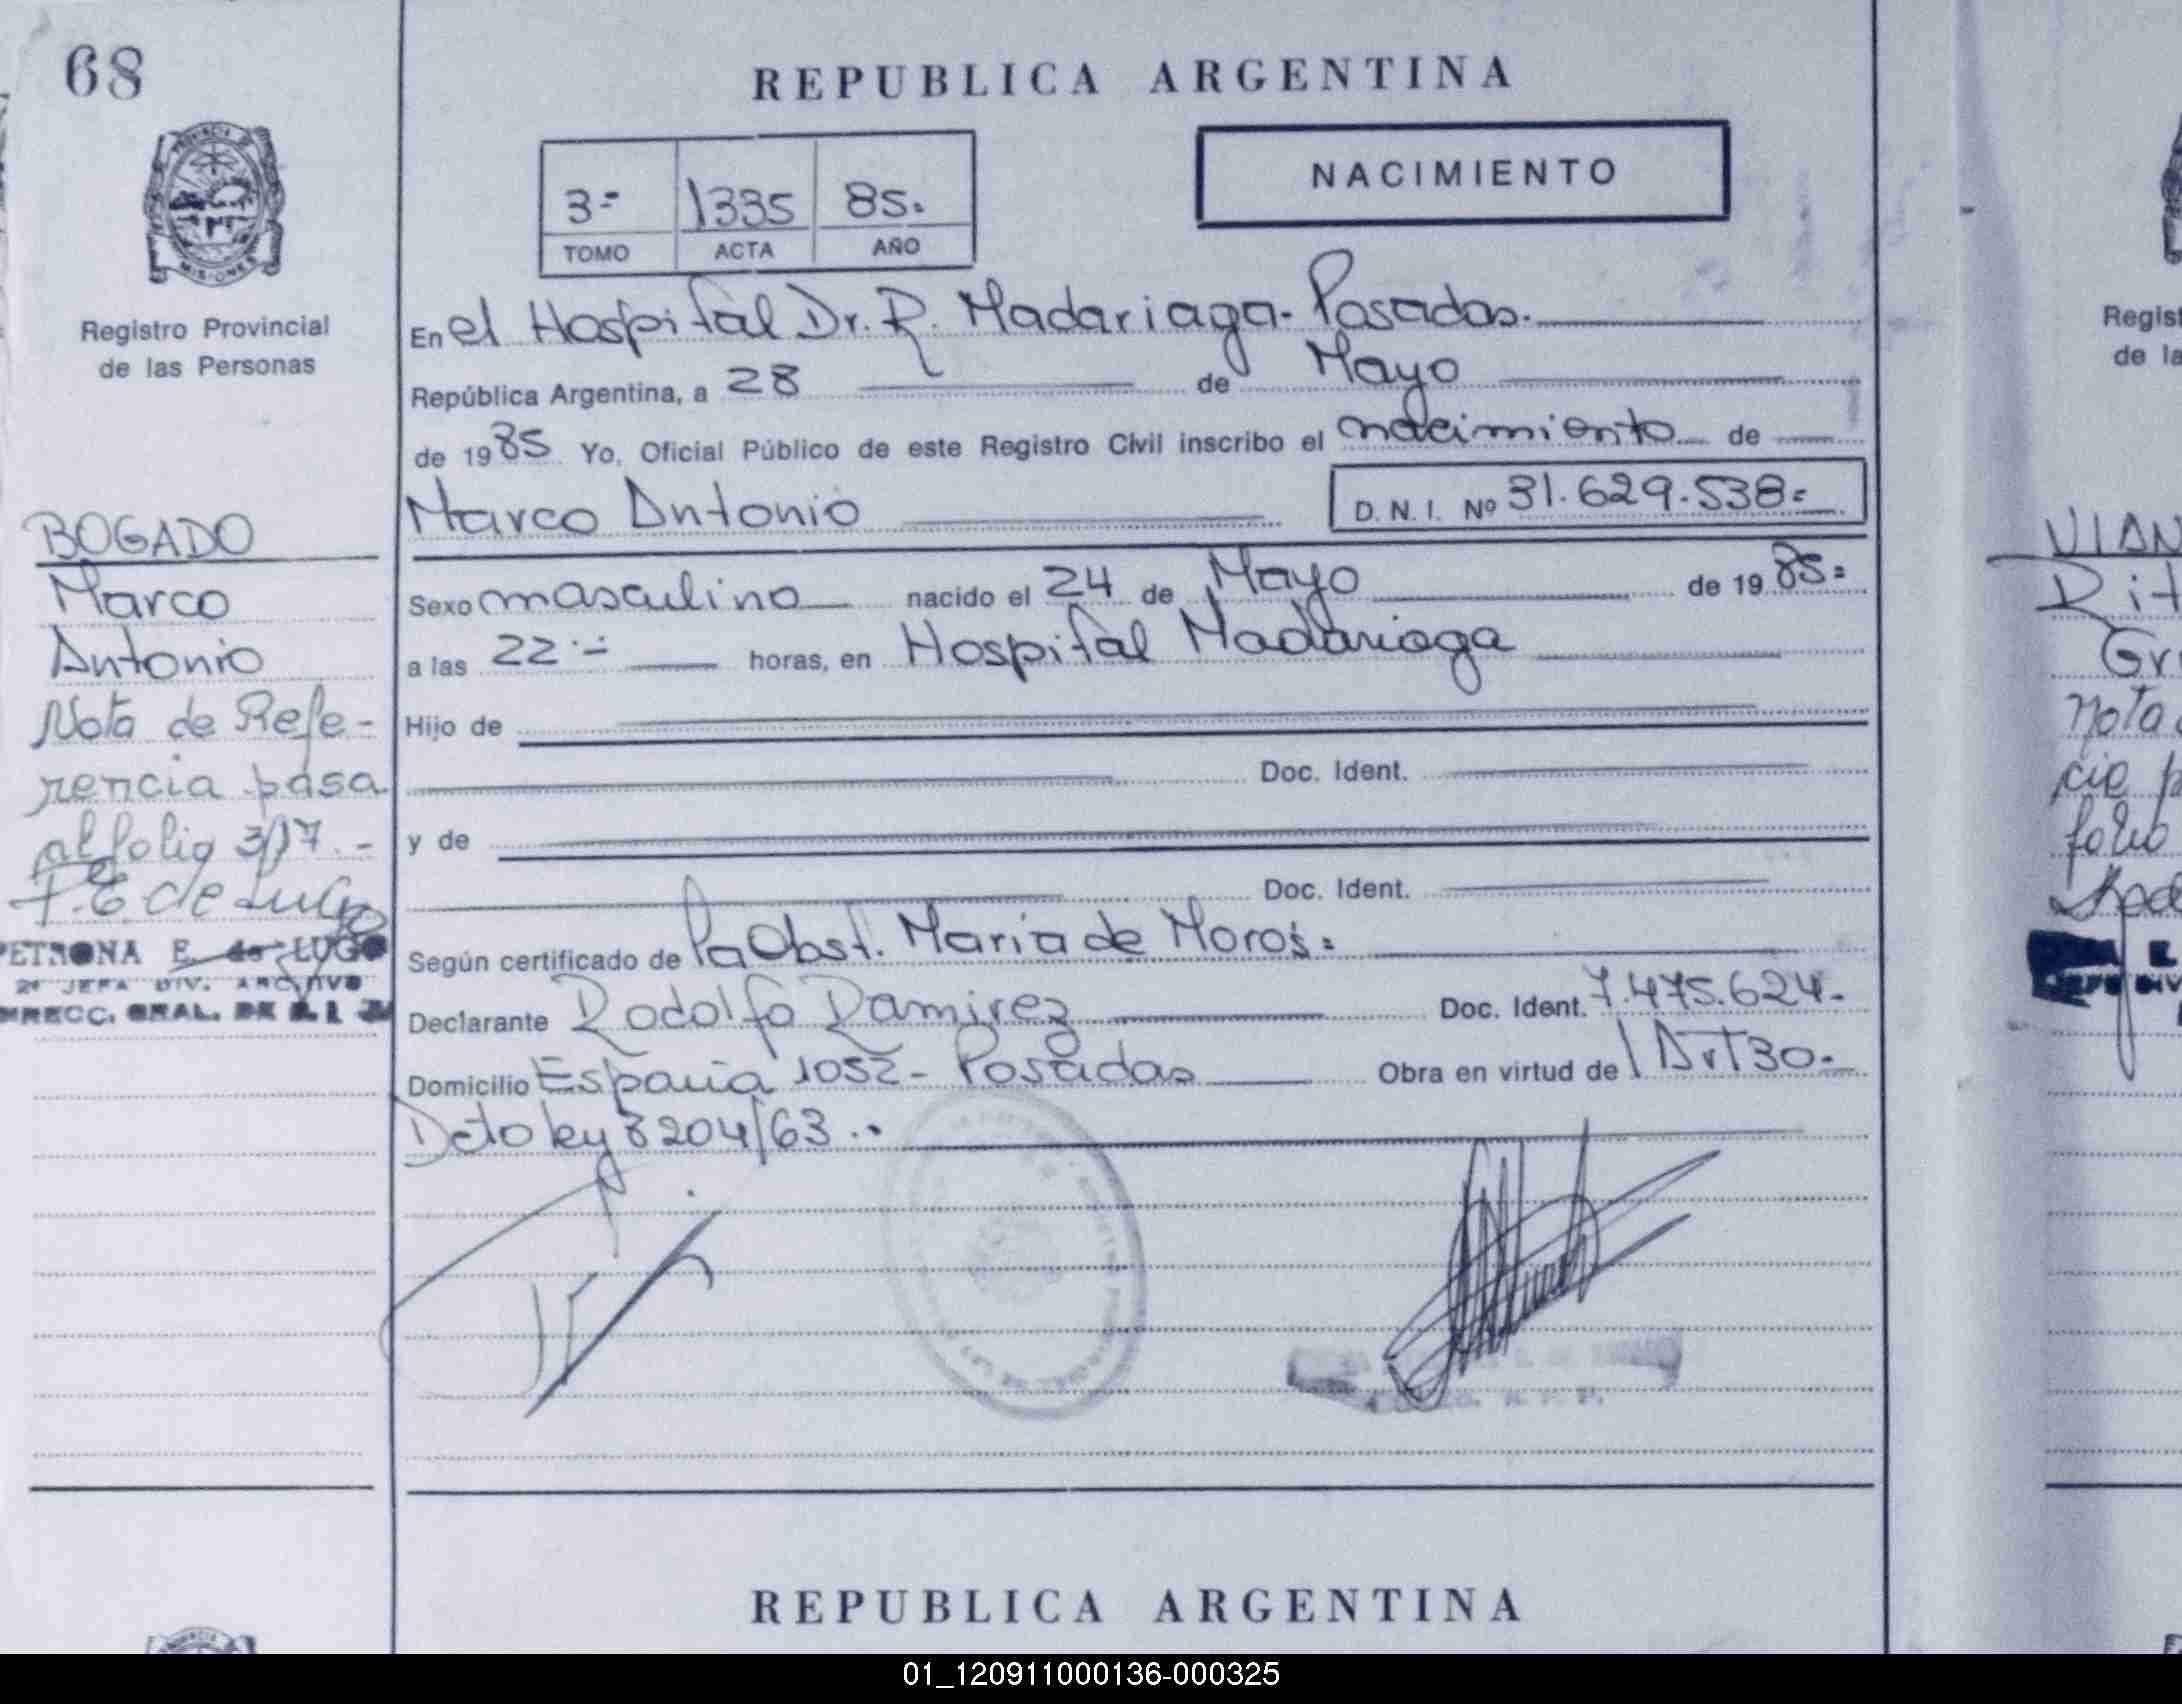 68
REPUBLICA ARGENTINA
PROVINCIA DE
MISIONES
Registro Provincial
de las Personas
3=
1335
85.
TOMO
ACTA
AÑO
NACIMIENTO
En el Hospital Dr. R. Madariaga. Posadas.
República Argentina, a 28 de Mayo
de 1985 Yo, Oficial Público de este Registro Civil inscribo el nacimiento de
Marco Antonio
D.N.I. Nº 31.629.538=
Sexo masculino nacido el 24 de Mayo de 1985=
a las 22 horas, en Hospital Madariaga
Hijo de
Doc. Ident.
y de
Doc. Ident.
Según certificado de la Obst. Maria de Moros=
Declarante Rodolfo Ramirez Doc. Ident. 7.475.624-
Domicilio España 1052- Posadas Obra en virtud de l Art 30.
Dcto ley 8204/63..
BOGADO
Marco
Antonio
Nota de Refe-
rencia pasa
al folio 317.-
P.E. de Lugo
PETRONA E. de LUGO
2ª JEFA DIV. ARCHIVO
DIRECC. GRAL. DE
REPUBLICA ARGENTINA
Regist
de la
VIAN
Rit
Gri
Nota
cia p
folio
01_120911000136-000325